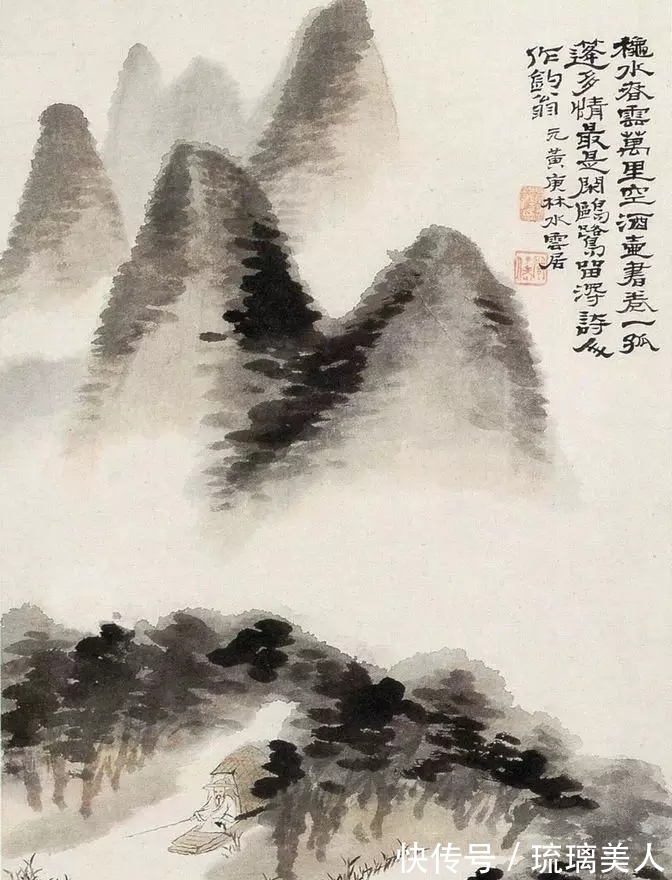 龝水春雲萬里空酒壺書卷一孤
蓬多情最是閑鷗鷺留得詩人
作釣翁 元黃庚林水雲居
快传号 / 琉璃美人